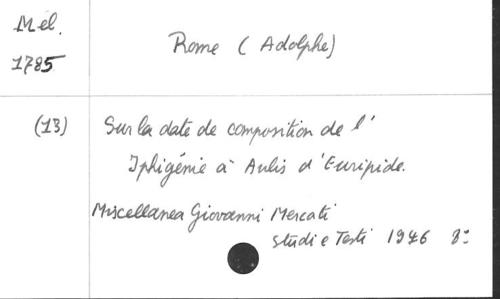 Mél.
1785
Rome (Adolphe)
(13)
Sur la date de composition de l'
Iphigénie à Aulis d'Euripide.
Miscellanea Giovanni Mercati
studi e Testi 1946 8º